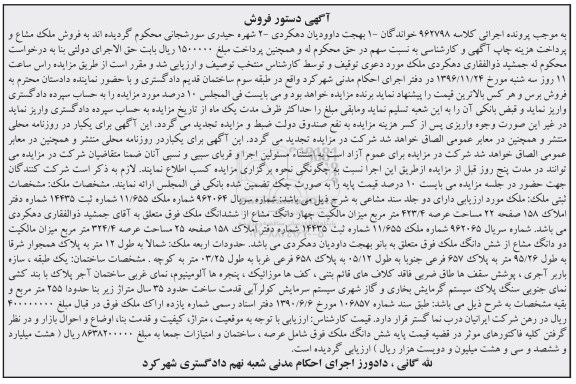 آگهی دستور فروش
به موجب پرونده اجرائی کلاسه ۹۶۲۷۹۸ خواندگان -۱ بهجت داودیان دهکردی -۲ شهره حیدری سورشجانی محکوم گردیده اند به فروش ملک مشاع و
پرداخت هزینه چاپ آگهی و کارشناسی به نسبت سهم در حق محکوم له و همچنین پرداخت مبلغ ۱۵۰۰۰۰۰ ریال بابت حق الاجرای دولتی بنا به درخواست
محکوم له جمشید ذوالفقاری دهکردی ملک مورد دعوی توقیف و توسط کارشناس منتخب توصیف و ارزیابی شد و مقرر است از طریق مزایده راس ساعت
۱۱ روز سه شنبه مورخ ۱۳۹۶/۱۱/۲۴ در دفتر اجرای احکام مدنی شهرکرد واقع در طبقه سوم ساختمان قدیم دادگستری و با حضور نماینده دادستان محترم به
فروش برسد و هر کس بالاترین قیمت را پیشنهاد نماید برنده مزایده خواهد بود و می بایست فی المجلس ۱۰ درصد مورد مزایده را به حساب سپرده دادگستری
واریز نماید و قبض بانکی آن را به این شعبه تسلیم نماید ومابقی مبلغ را حداکثر ظرف مدت یک ماه از تاریخ مزایده به حساب سپرده دادگستری واریز نماید
در غیر این صورت وجوه واریزی پس از کسر هزینه مزایده به نفع صندوق دولت ضبط و مزایده تجدید می گردد. این آگهی برای یکبار در روزنامه محلی
منتشر و همچنین در معابر عمومی الصاق خواهد شد شرکت در مزایده تجدید می گردد. این آگهی برای یکباردر روزنامه محلی منتشر و همچنین در معابر
عمومی الصاق خواهد شد شرکت در مزایده برای عموم آزاد است به استثناء مسئولین اجرا و قربای سببی و نسبی آنان ضمنا متقاضیان شرکت در مزایده می
توانند در مدت پنج روز قبل از مزایده ازطریق این اجرا نسبت به چگونگی نحوه برگزاری مزایده کسب اطلاع نمایند. لازم به ذکر است شرکت کنندگان
جهت حضور در جلسه مزایده می بایست ۱۰ درصد قیمت پایه را به صورت چک تضمین شده بانکی فی المجلس ارائه نمایند. مشخصات ملک: مشخصات
ثبتی ملک: ملک مورد ارزیابی دارای دو جلد سند مشاعی به شرح ذیل می باشد: شماره سریال ۹۶۲۰۶۴ شماره ملک ۱۱/۶۵۵ شماره ثبت ۱۴۴۳۵ شماره دفتر
املاک ۱۵۸ صفحه ۲۲ مساحت عرصه ۴۲۳/۴ متر مربع میزان مالکیت چهار دانگ مشاع از ششدانگ ملک فوق متعلق به آقای جمشید ذوالفقاری دهکردی
می باشد. شماره سریال ۹۶۲۰۶۵ شماره ملک ۱۱/۶۵۵ شماره ثبت ۱۴۴۳۵ شماره دفتر املاک ۱۵۸ صفحه ۲۵ مساحت عرصه ۳۲۴/۴ متر مربع میزان مالکیت
دو دانگ مشاع از شش دانگ ملک فوق متعلق به بانو بهجت داودیان دهکردی می باشد. حدودات اربعه ملک: شمالا به طول ۱۲ متر به پلاک همجوار شرقا
به طول ۹۵/۲۶ متر به پلاک ۶۵۷ فرعی جنوبا به طول ۰۵/۱۲ به پلاک ۶۵۸ فرعی غربا به طول ۰۳/۲۵ متر به کوچه . مشخصات ساختمان: یک طبقه ، سازه
باربر آجری ، پوشش سقف ها طاق ضربی فاقد کلاف های قائم بتنی ، کف ها موزائیک ، پنجره ها آلومینیوم، نمای غربی ساختمان آجر پلاک با بند کشی
نمای جنوبی سنگ پلاک سیستم گرمایش بخاری و گاز شهری سیستم سرمایش کولرآبی قدمت ساخت حدود ۳۵ سال متراژ زیر بنا حدودا ۲۵۵ متر مربع و
بقیه مشخصات به شرح ذیل می باشد: طبق سند شماره ۱۰۶۸۵۷ مورخ ۱۳۹۰/۶/۶ دفتر اسناد رسمی شماره یازده اراک ملک فوق در قبال مبلغ ۴۰۰۰۰۰۰۰۰
ریال در رهن شرکت ایرانیان درب نما گستر قرار دارد. قیمت کارشناس: ارزیابی با توجه به موقعیت ، متراژ، کیفیت و قدمت بنا، اوضاع و احوال بازار و در نظر
گرفتن کلیه فاکتورهای موثر در قضیه قیمت پایه شش دانگ ملک فوق شامل عرصه ، ساختمان و امتیازات جمعا به مبلغ ۸۶۳۸۲۰۰۰۰۰ ریال ( هشت میلیارد
و ششصد و سی و هشت میلیون و دویست هزار ریال ) ارزیابی گردیده است.
لله گانی ، دادورز اجرای احکام مدنی شعبه نهم دادگستری شهرکرد